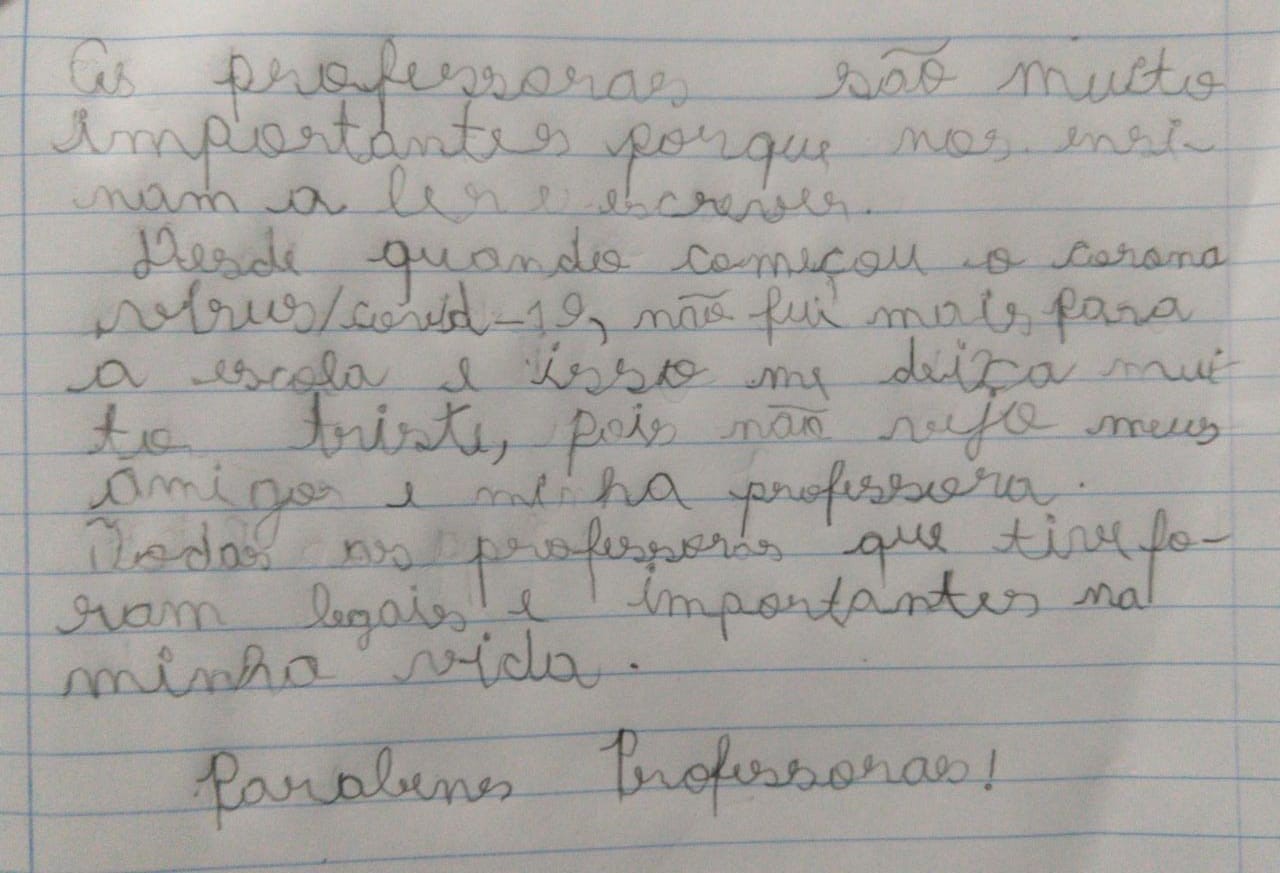 As professoras são muito
importantes porque nos ensi-
nam a ler e escrever.
Desde quando começou o corona
vírus/covid-19, não fui mais para
a escola e isso me deixa mui
to triste, pois não vejo meus
amigos e minha professora.
Todas as professoras que tive fo-
ram legais e importantes na
minha vida.
Parabens Professoras!